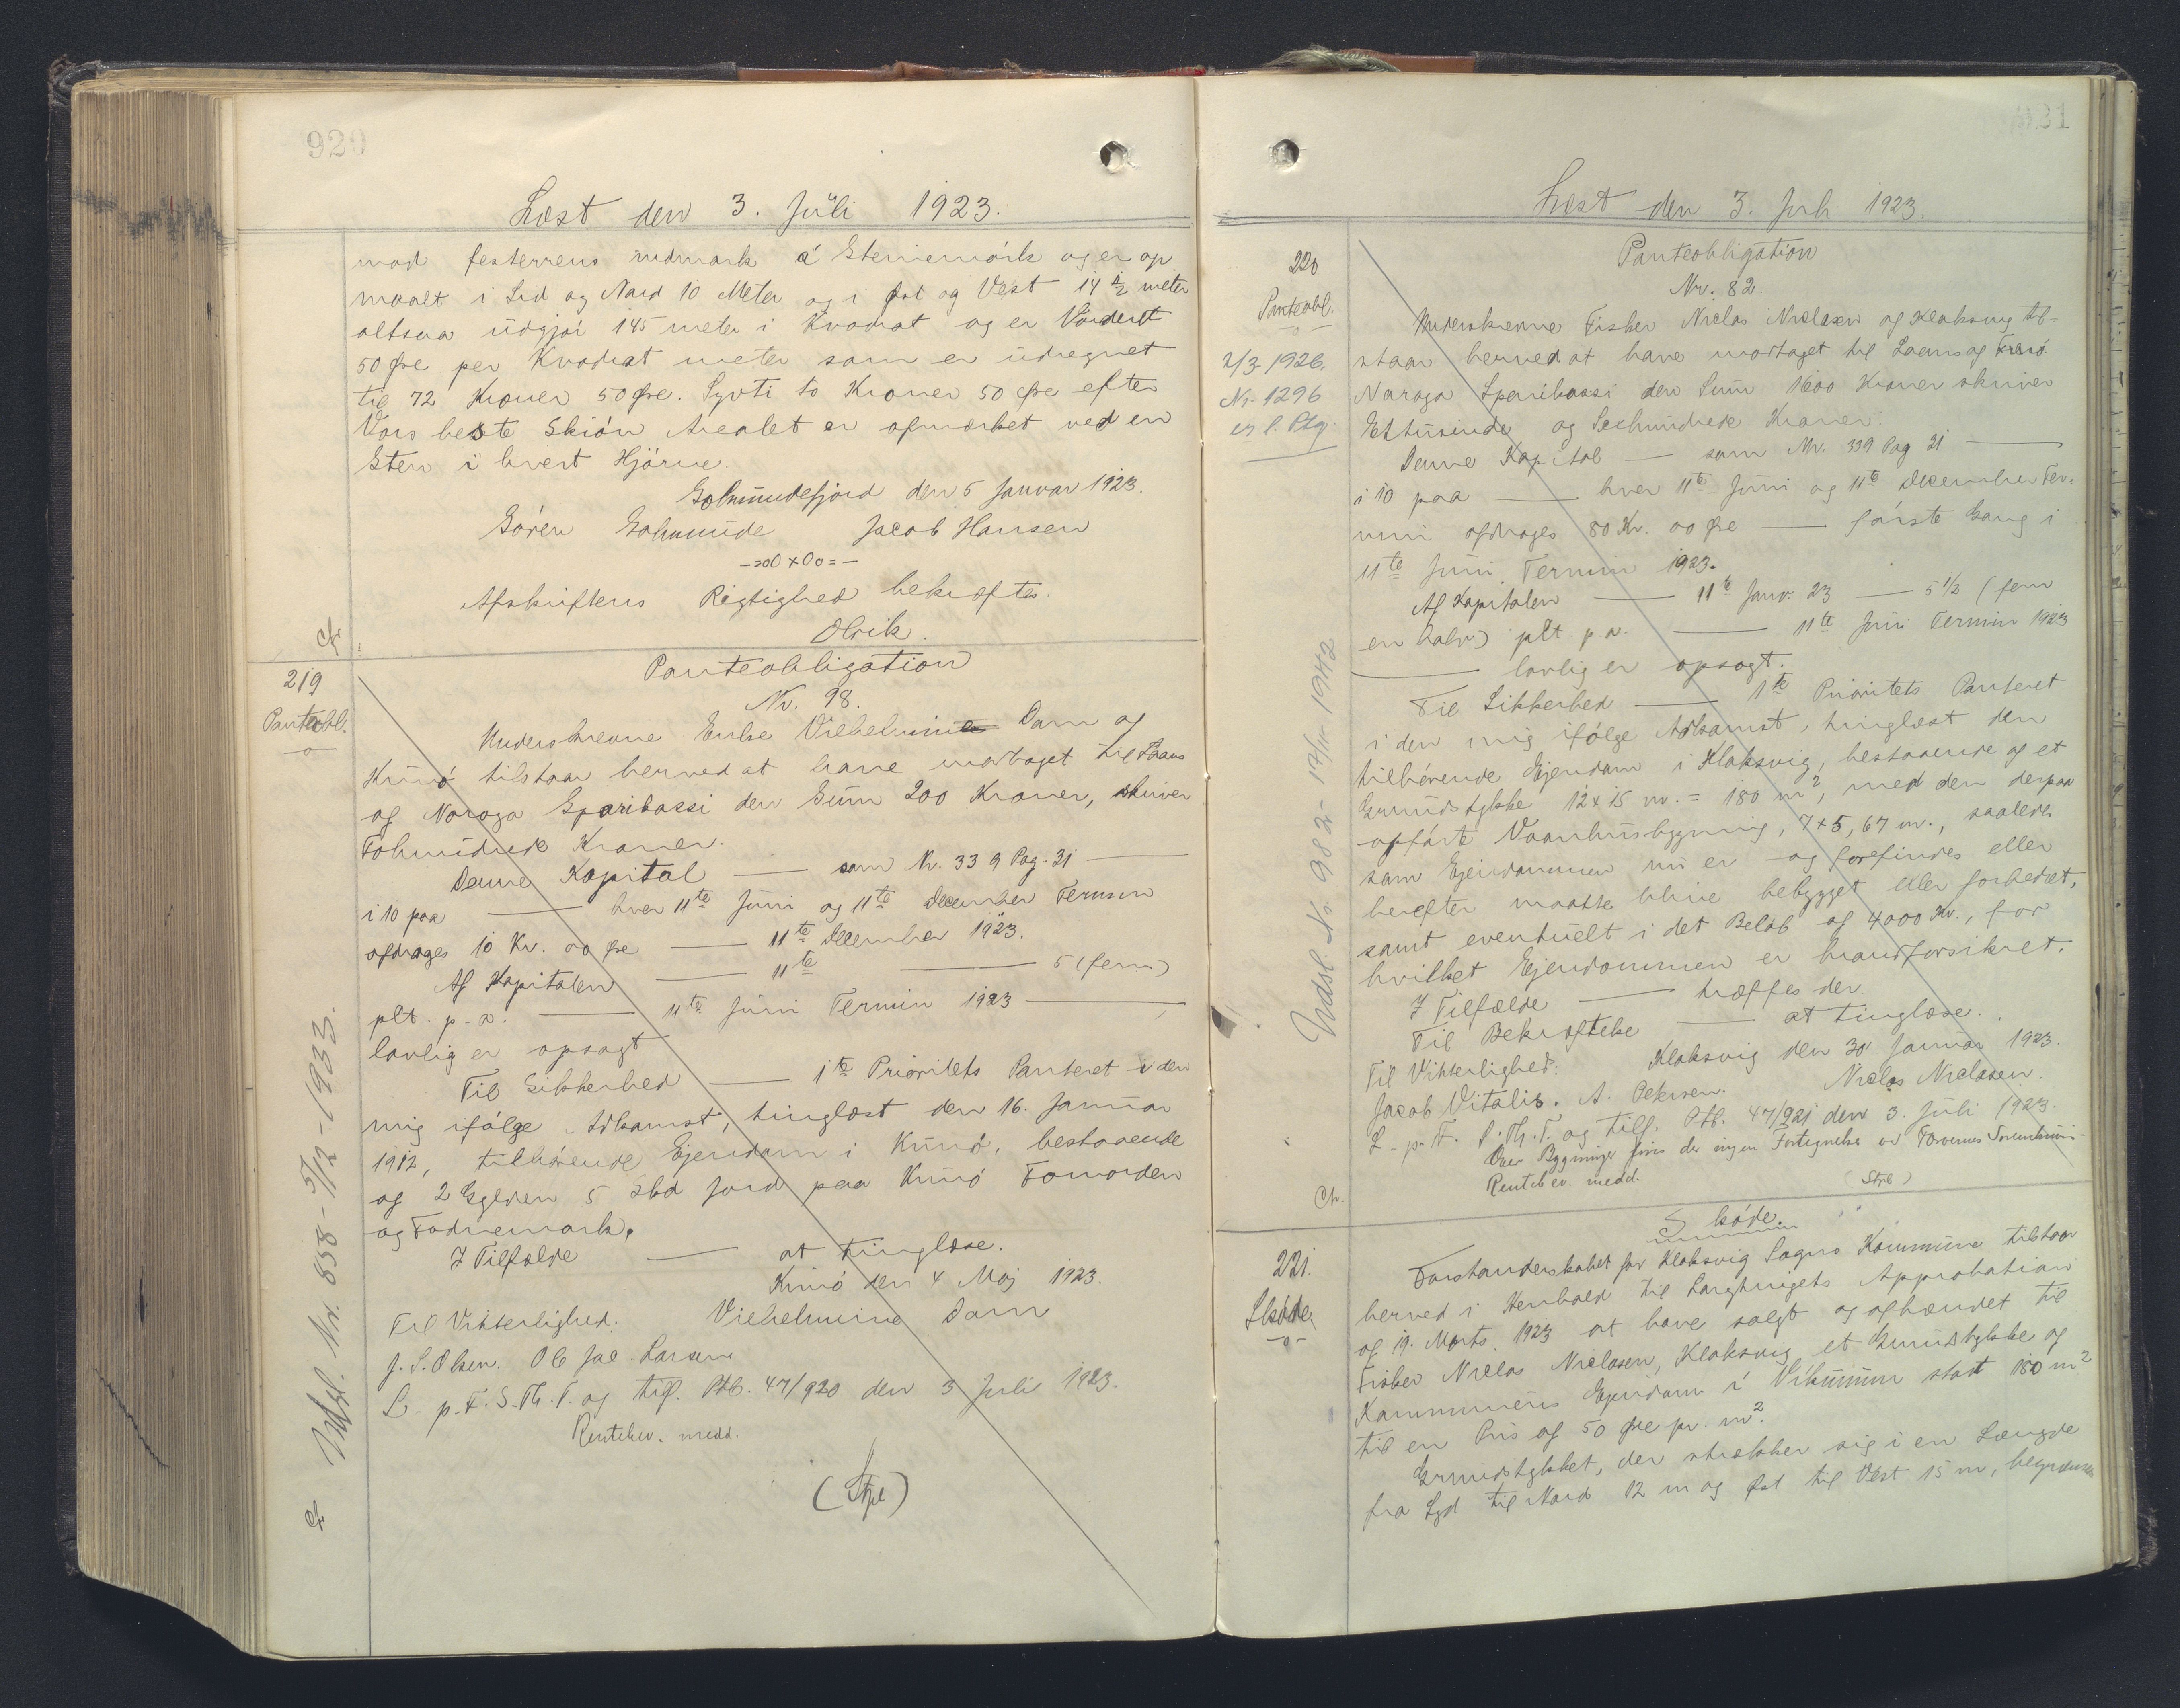 920
Læst den 3. Juli 1923.
mod festerrens indmark á Steinemórk og er op
maalt i Syd og Nord 10 Meter og i Øst og Vest 14 1/2 meter
altsaa údgjór 145 meter i Kvadrat og er Vúrderet
50 Øre per Kvadrat meter som er údregnet
til 72 Kroner 50 Øre. Sytti to Kroner 50 Øre efter
Vors beste Skión Arealet er afmærket ved en
Sten i hvert Hjörne.
den 5 Januar 1923.
Sören Jacob Hansen
Afskriftens Rigtighed bekræftes.
Olrik.
219
Panteobl.
Panteobligation
Nr. 98.
Underskrevne Enke Vilhelmine Dam af
Kúnó tilstaar herved at have modtaget til Laans
af Noroya Sparikassi den Súm 200 Kroner, skriver
Tohúndrede Kroner.
Denne Kapital — som Nr. 339 Pag. 31 —
i 10 paa — hver 11te Júni og 11te December Termin
afdrages 10 Kr. 00 Øre — 11te December 1923.
Af Kapitalen — 11te — 5 (fem)
plt. p. a. — 11te Júni Termin 1923 —
lovlig er opsagt
Til Sikkerhed — 1te Prioritets Panteret i den
mig ifólge Adkomst, tinglæst den 16. Januar
1912, tilhórende Ejendom i Kúnó, bestaaende
af 2 Gylden 5 Skd Jord paa Kúnó
og
I Tilfælde — at tinglæse.
Kúnó den 4 Maj 1923.
Til Vitterlighed. Vilhelmine Dam
J. S. Olsen. Ole Jac. Larsen
L. p. F. S. Th. T. og tilf. Ptb. 47/920 den 3 Juli 1923.
Rentebev. medd.
Udsl. Nr. 858 - 5/12 - 1933.
921
Læst den 3. Juli 1923.
220
Panteobl.
2/3 1926.
Nr. 1296
er l. Ptg.
Udsl. Nr. 982 - 17/11 1942
Panteobligation
Nr. 82
Underskrevne Fisker Niclas Niclasen af Klaksvig til-
staar herved at have modtaget til Laans af
Noroya Sparikassi den Súm 1600 Kroner skriver
Ettúsinde og Sechúndrede Kroner.
Denne Kapital — som Nr. 339 Pag 31 —
i 10 paa — hver 11te Júni og 11te December Ter-
min afdrages 80 Kr. 00 Øre — fórste Gang i
11te Júni Termin 1923.
Af Kapitalen — 11te Janr. 23 — 5 1/2 (fem
en halv) plt. p. a. — 11te Júni Termin 1923
— lovlig er opsagt.
Til Sikkerhed — 1te Prioritets Panteret
i den mig ifólge Adkomst, tinglæst den
tilhórende Ejendom i Klaksvig, bestaaende af et
Grúndstykke 12 x 15 m. = 180 m², med den derpaa
opfórte Vaanhúsbygning, 7 x 5,67 m., saaledes
som Ejendommen nú er og forefindes eller
herefter maatte blive bebygget eller forbedret,
samt eventúelt i det Belób af 4000 Kr., for
hvilket Ejendommen er brandforsikret.
I Tilfælde — træffes der
Til Bekræftelse — at tinglæse.
Til Vitterlighed. Klaksvig den 30 Januar 1923.
Jacob Vitalis. A. Petersen. Niclas Niclasen.
L. p. F. S. Th. T. og tilf. Ptb. 47/921 den 3. Júli 1923.
Over Bygninger fins der ingen Fortegnelse
Rentebev. medd.
221.
Skóde
Skóde.
Forstanderskabet for Klaksvig Sogns Kommúne tilstaar
herved i Henhold til Lagtingets Approbation
af 19. Marts 1923 at have solgt og afhændet til
Fisker Niclas Niclasen, Klaksvig et Grúndstykke af
Kommúnens Ejendom i stort 180 m²
til en Pris af 50 Øre pr. m².
Grúndstykket, der strækker sig i en Længde
fra Syd til Nord 12 m og Øst til Vest 15 m, begrænses